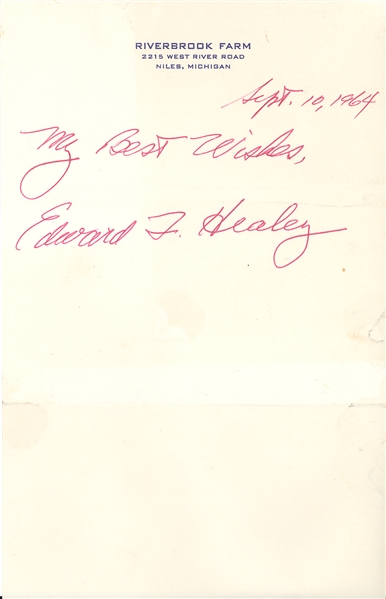 RIVERBROOK FARM
2215 WEST RIVER ROAD
NILES, MICHIGAN
Sept. 10, 1964
My Best Wishes,
Edward F. Healey